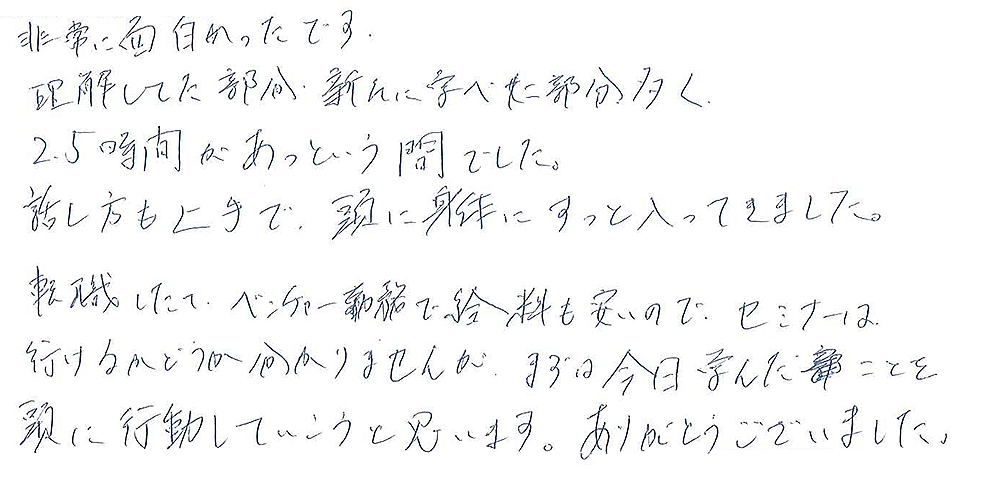 非常に面白かったです。
理解してた部分、新たに学べた部分多く、
2.5時間があっという間でした。
話し方も上手で、頭に身体にすっと入ってきました。
転職したて、ベンチャー勤務で給料も安いので、セミナーは
行けるかどうか分かりませんが、まずは今日学んだことを
頭に行動していこうと思います。ありがとうございました。